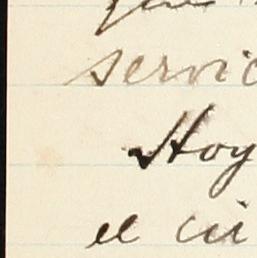 servic
Hoy
el ci